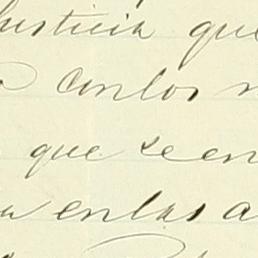 Justicia que
Carlos
que se en
en las a